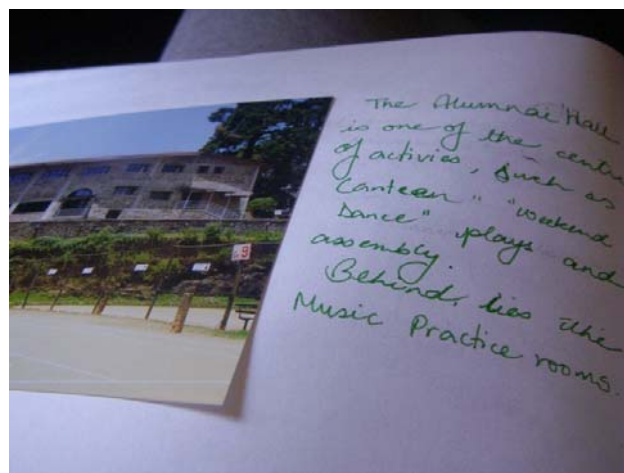 The Alumnai Hall
is one of the centre
of activies, such as
Canteen" "weekend
Dance" plays and
assembly.
Behind, lies the
Music Practice rooms.